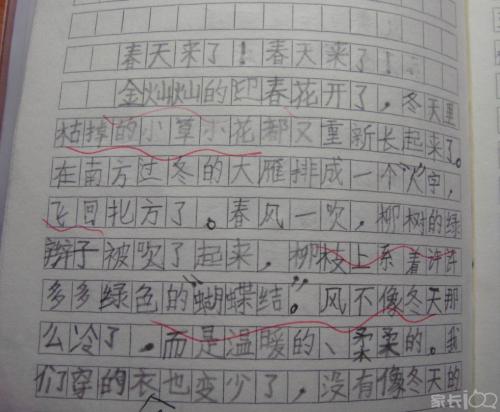 春天来了！春天来了！
金灿灿的迎春花开了，冬天里
枯掉的小草小花都又重新长起来了。
在南方过冬的大雁排成一个“人”字，
飞回北方了。春风一吹，柳树的绿
辫子被吹了起来，柳枝上系着许许
多多绿色的“蝴蝶结”。风不像冬天那
么冷了，而是温暖的、柔柔的。我
们穿的衣也变少了，没有像冬天的
家长100